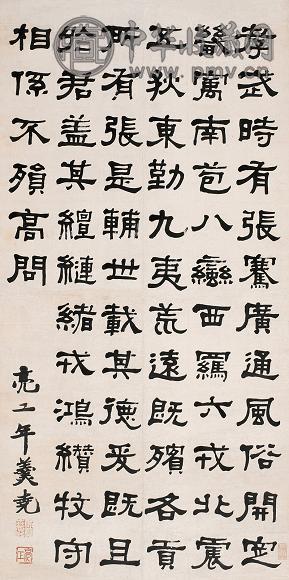 孝武時有張騫廣通風俗開定
畿寓南苞八蠻西羈六戎北震
五狄東勤九夷荒遠既殯各貢
所有張是輔世載其德爰既且
於君蓋其繵縺緒戎鴻纘牧守
相係不殞高問
亮工年羹堯